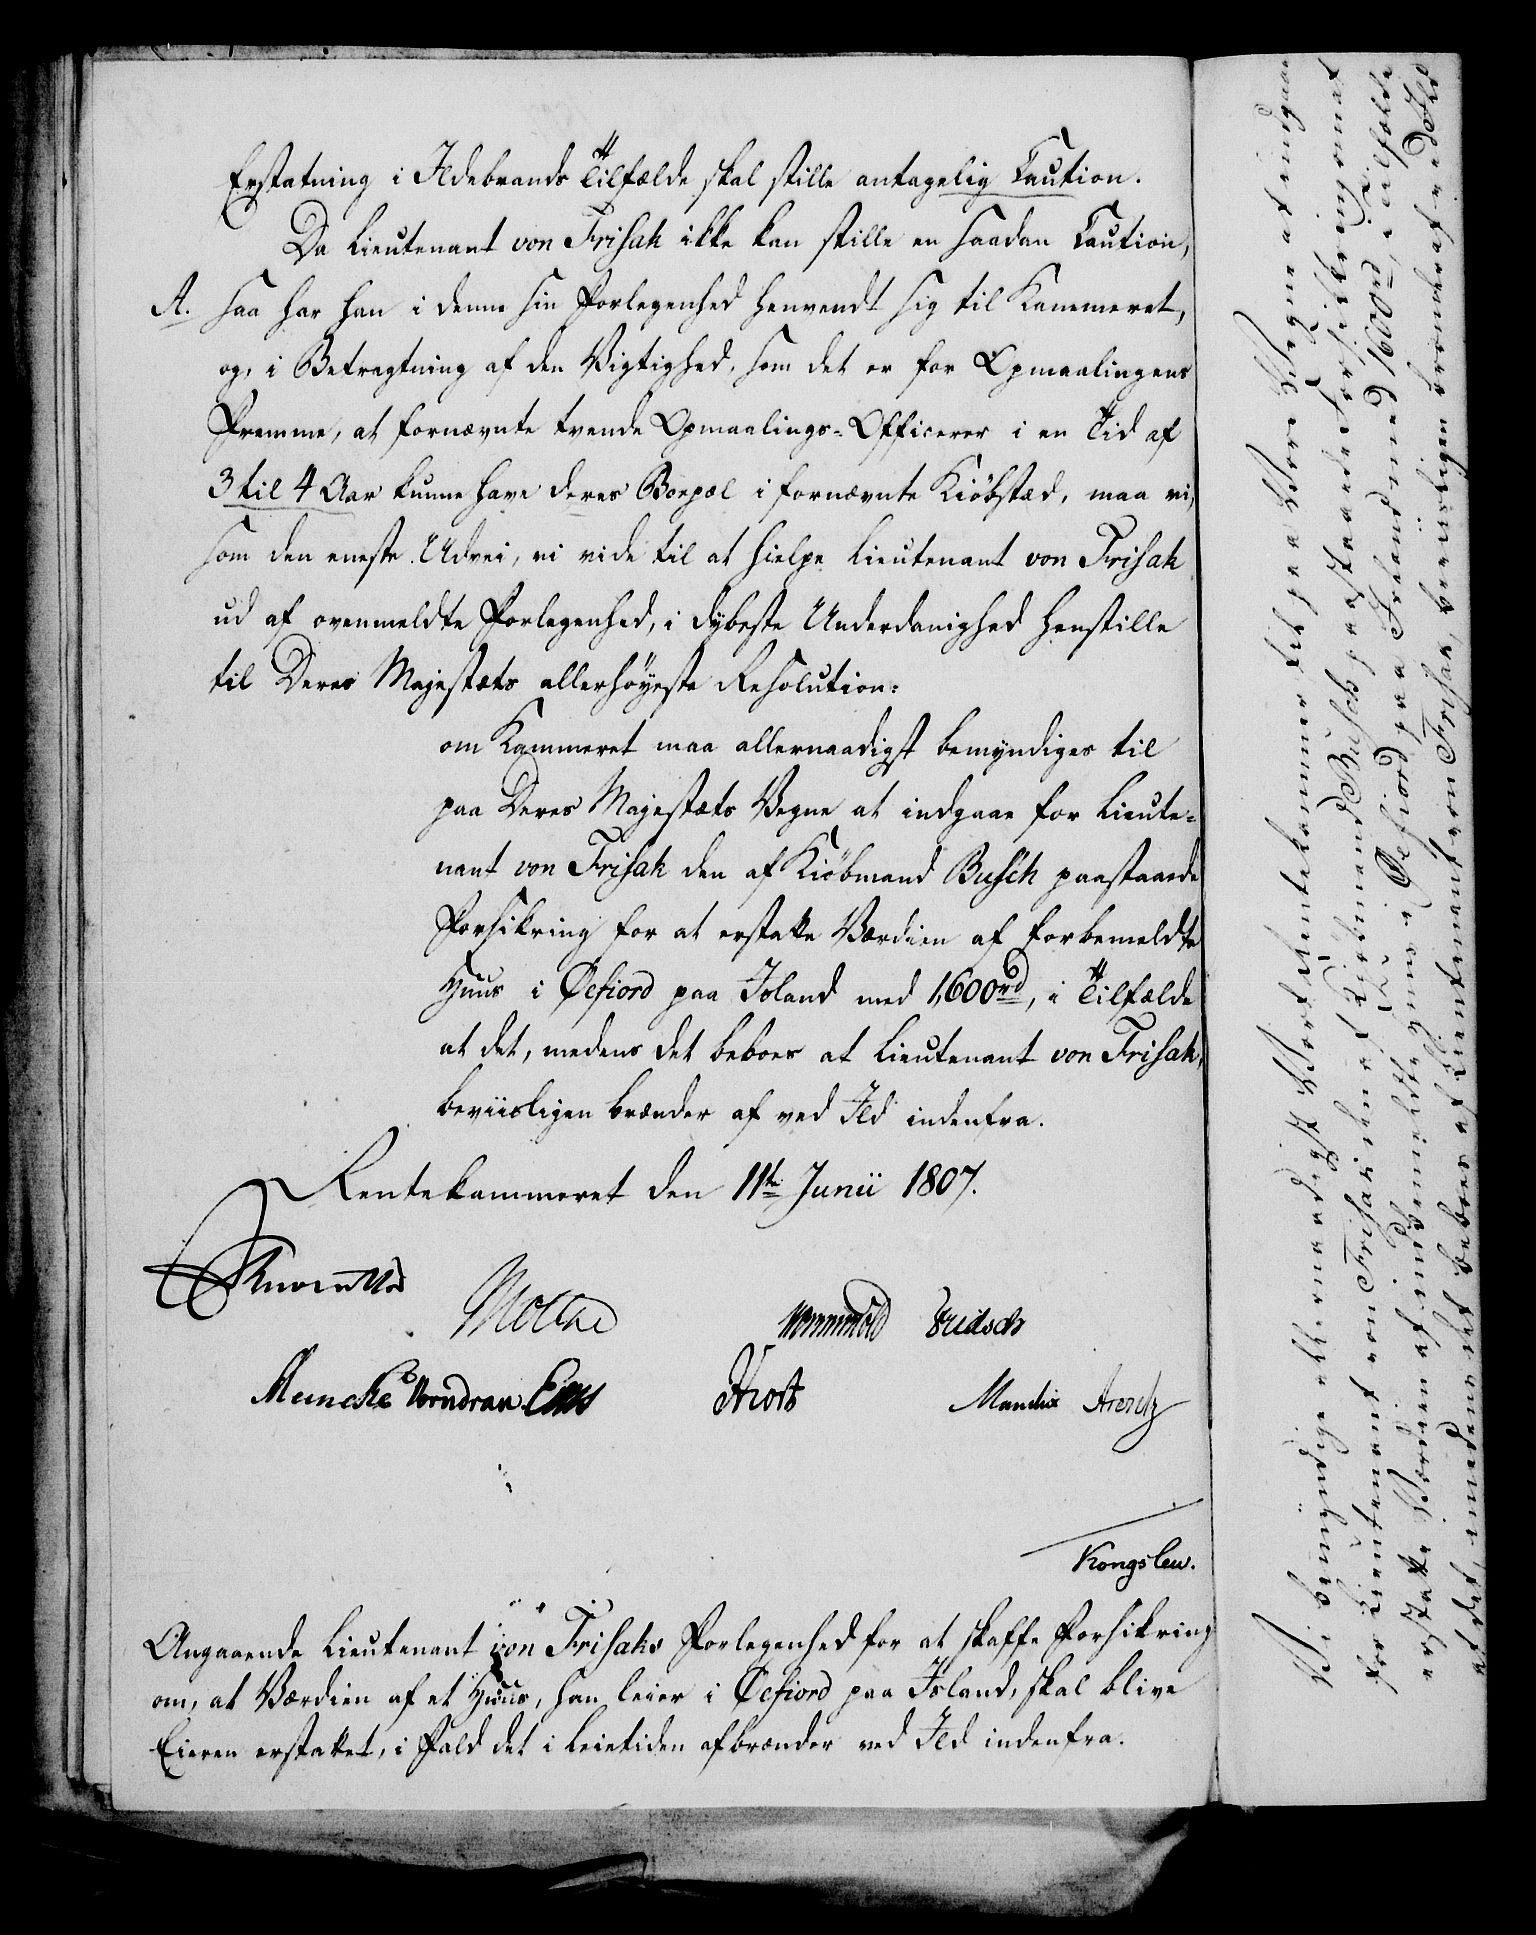 Erstatning i Ildebrands Tilfælde skal stille antagelig Caution.
Da Lieutenant von Frisak ikke kan stille en saadan Caution,
A. saa har han i denne sin Forlegenhed henvendt sig til Kammeret,
og, i Betragtning af den Vigtighed, som det er for Opmaalingens
Fremme, at fornævnte tvende Opmaalings-Officerer i en Tid af
3 til 4 Aar kunne have deres Boepæl i fornævnte Kiöbstæd, maa vi,
som den eneste Udvei, vi vide til at hielpe Lieutenant von Frisak
ud af ovenmeldte Forlegenhed, i dybeste Underdanighed henstille
til Deres Majestæts allerhöyeste Resolution:
om Kammeret maa allernaadigst bemyndiges til
paa Deres Majestæts Vegne at indgaae for Lieute-
nant von Frisak den af Kiöbmand Busch paastaaede
Forsikring for at erstatte Værdien af forbemeldte
Huus i Øefiord paa Island med 1,600 rd, i Tilfælde
at det, medens det beboes af Lieutenant von Frisak,
beviisligen brænder af ved Ild indenfra.
Rentekammeret den 11te Junii 1807.
Reventlow
Moltke Wormskiold Fridsch
Meincke Worndran Hiort Mandix Arentz
Kongslew.
Angaaende Lieutenant von Frisaks Forlegenhed for at skaffe Forsikring
om, at Værdien af et Huus, han leier i Øefiord paa Island, skal blive
Eieren erstattet, i Fald det i Leietiden afbrænder ved Ild indenfra.
Vi bemyndige allernaadigst Vort Rentekammer til paa Vore Vegne at indgaae
for Lieutenant von Frisak den af Kiöbmand Busch paastaaede Forsikring om at
erstatte Værdien af indbemeldte Huus i Øefiord paa Island med 1600 rd, i Tilfælde
at det, imedens det beboes af Lieutenant von Frisak, beviisligen brænder af ved Ild